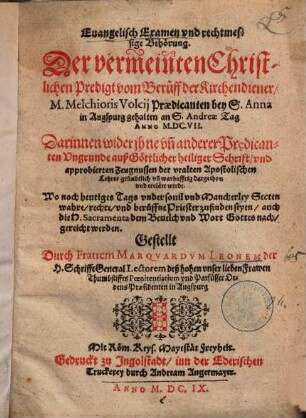 Euangelisch Examen vnd rechtmes-
sige Behörung.
Der vermeinten Christ-
lichen Predigt vom Berůff der Kirchendiener/
M. Melchioris Volcij Prædicanten bey S. Anna
in Augspurg gehalten an S. Andreæ Tag
ANNO M.DC.VII.
Darinnen wider jhne vñ anderer Prędican-
ten Vngrunde auß Göttlicher heiliger Schrifft/ vnd
approbierten Zeugnussen der vralten Apostolischen
Lehrer gründtlich vñ warhafftig dargethon
vnd erklärt wirdt.
Wo noch heutiges Tags vnder souil vnd Mancherley Secten
wahre/ rechte/ vnd berüffne Priester zufinden seyen/ auch
die H. Sacramenta dem Beuelch vnd Wort Gottes nach/
gereicht werden.
Gestellt
Durch Fratrem MARQVARDVM LEONEM der
H. Schrifft General Lectorem deß hohen vnser lieben Frawen
Thumbstiffts Pœnitentiarium vnd Parfüsser Or-
dens Præsidenten in Augspurg.
Mit Röm. Keys. Mayestät Freyheit.
Gedruckt zu Ingolstadt/ inn der Ederischen
Truckerey durch Andream Angermayer.
ANNO M. DC. IX.